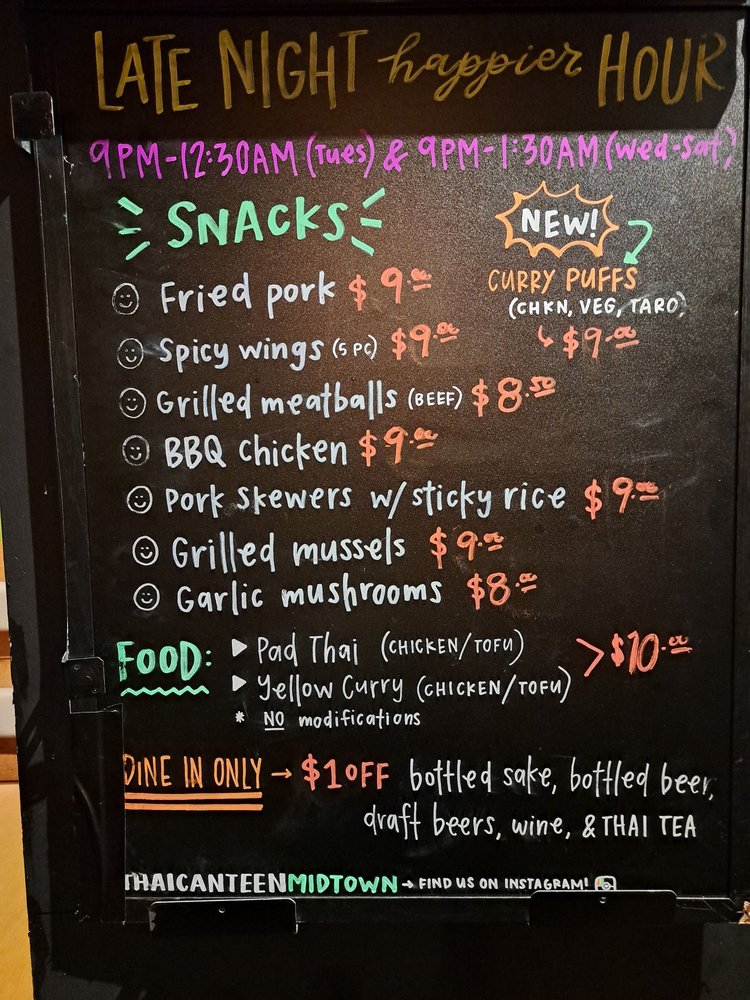 LATE NIGHT happier HOUR
9PM-12:30AM (Tues) & 9PM-1:30AM (Wed-Sat)
SNACKS
NEW!
CURRY PUFFS
(CHKN, VEG, TARO)
$9.00
Fried pork $9.00
Spicy wings (5 PC) $9.00
Grilled meatballs (BEEF) $8.50
BBQ chicken $9.00
Pork skewers w/ sticky rice $9.00
Grilled mussels $9.00
Garlic mushrooms $8.00
FOOD: ▶ Pad Thai (CHICKEN/TOFU)
▶ Yellow Curry (CHICKEN/TOFU)
> $10.00
* NO modifications
DINE IN ONLY → $1 OFF bottled sake, bottled beer,
draft beers, wine, & THAI TEA
THAICANTEENMIDTOWN → FIND US ON INSTAGRAM!